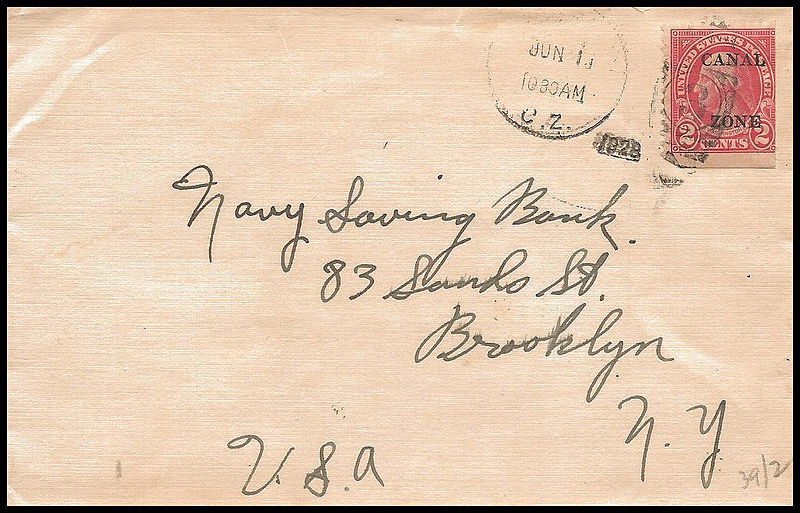 JUN 1
1030AM
C.Z.
1928
UNITED STATES POSTAGE
CANAL
ZONE
2 CENTS 2
Navy Saving Bank.
83 Sands St.
Brooklyn
N. Y
U.S.A
39/2